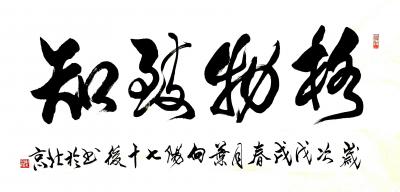 格物致知
歲次戊戌春月葉向陽七十後书於北京